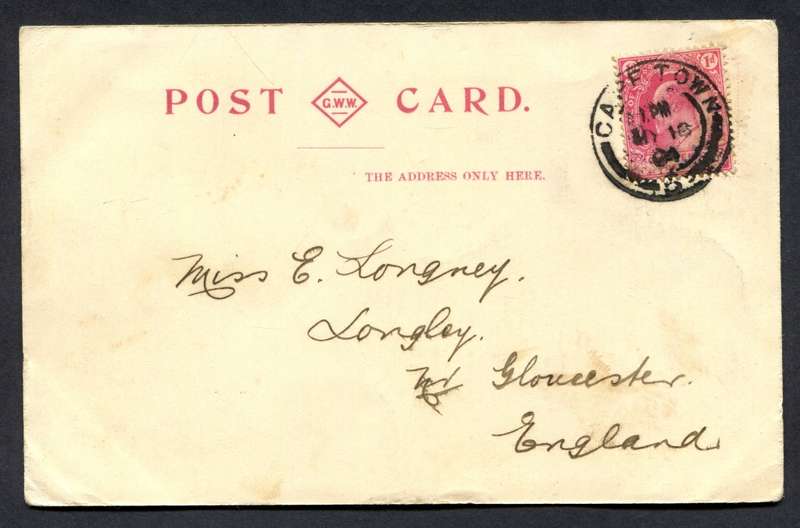 POST G.W.W. CARD.
THE ADDRESS ONLY HERE.
1d
CAPE TOWN
1 PM
MY 18
04
Miss E. Longney.
Longley.
Nr Gloucester.
England.